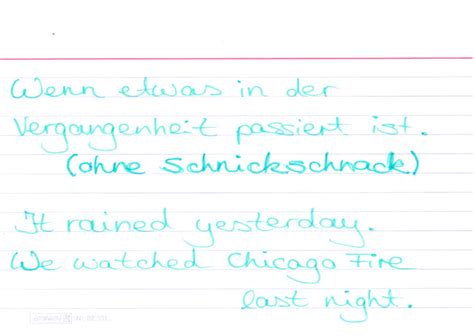 Wenn etwas in der
Vergangenheit passiert ist.
(ohne Schnickschnack)
It rained yesterday.
We watched Chicago Fire
last night.